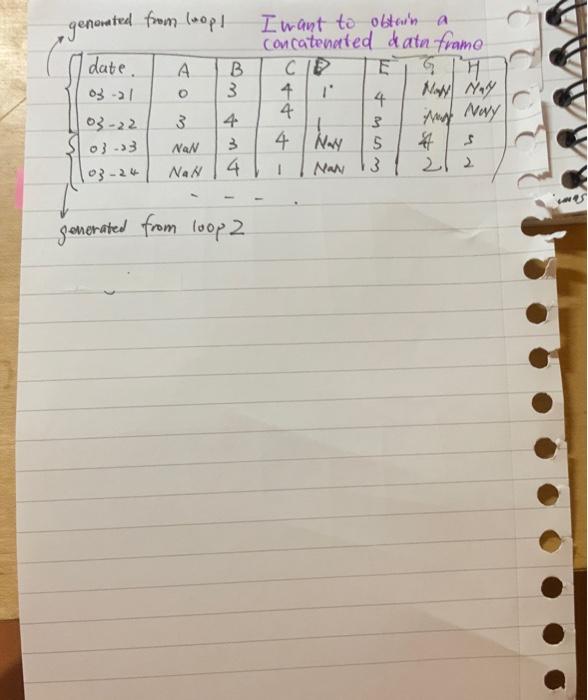 generated from loop1 I want to obtain a
concatenated data frame
date. A B C D E G H
03-21 0 3 4 1 4 NaN NaN
03-22 3 4 4 1 3 NaN NaN
03-23 NaN 3 4 NaN 5 4 5
03-24 NaN 4 1 NaN 3 2 2
- - - .
generated from loop2